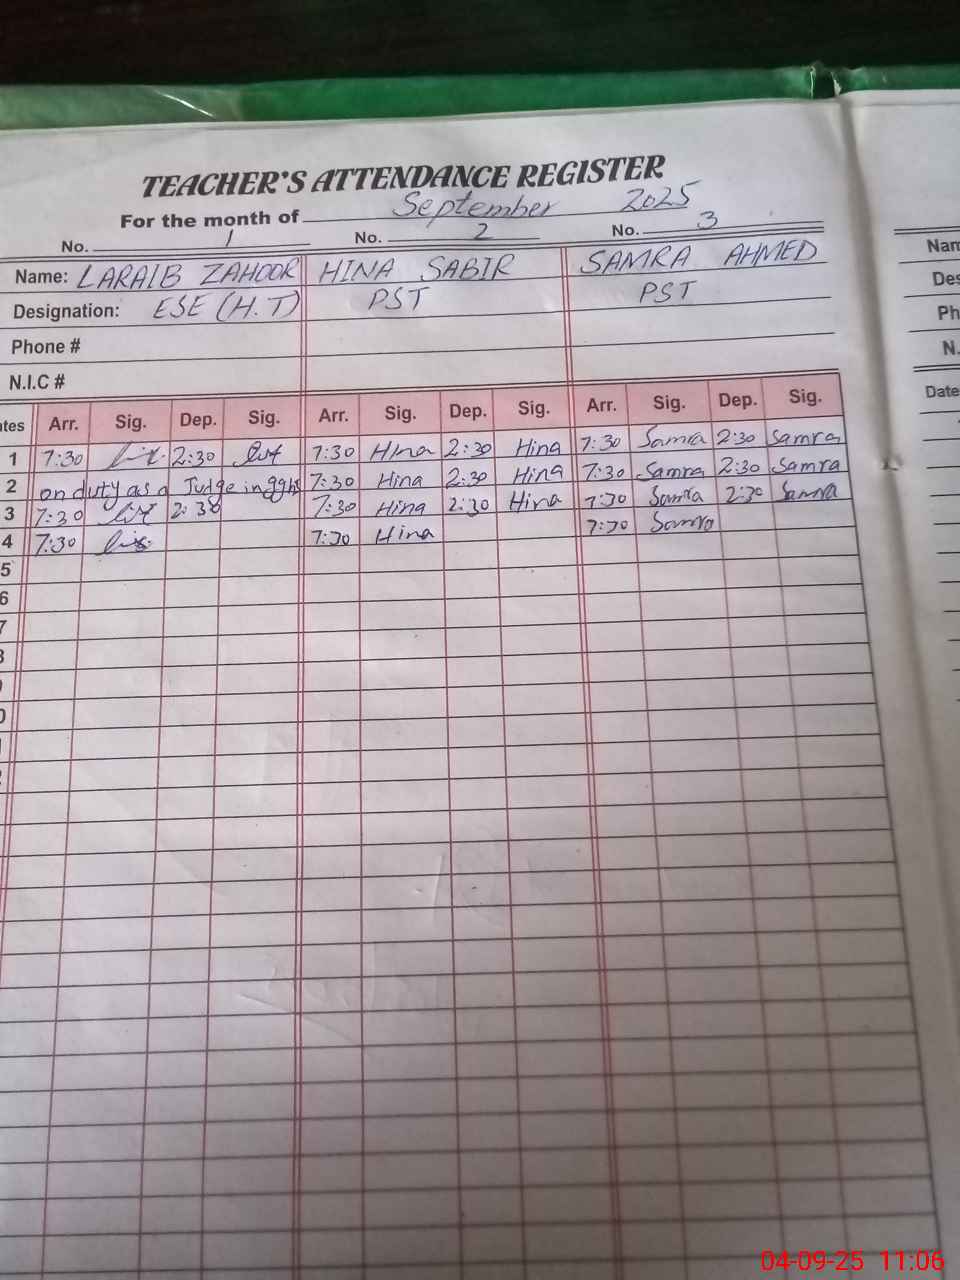 TEACHER'S ATTENDANCE REGISTER
For the month of September 2025
No. 1 No. 2 No. 3
Name: LARAIB ZAHOOR HINA SABIR SAMRA AHMED
Designation: ESE (H.T) PST PST
Phone #
N.I.C #
ates Arr. Sig. Dep. Sig. Arr. Sig. Dep. Sig. Arr. Sig. Dep. Sig.
1 7:30 2:30 7:30 Hina 2:30 Hina 7:30 Samra 2:30 Samra
2 on duty as a Judge in gghs 7:30 Hina 2:30 Hina 7:30 Samra 2:30 Samra
3 7:30 2:30 7:30 Hina 2:30 Hina 7:30 Samra 2:30 Samra
4 7:30 7:30 Hina 7:30 Samra
5
6
7
Nam
Des
Ph
N.
Date
04-09-25 11:06